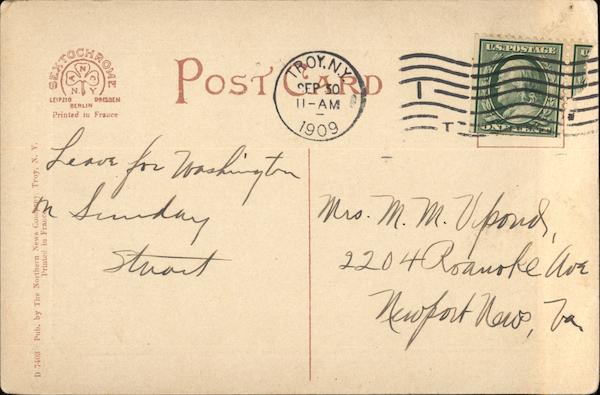 SEXTOCHROME
A N C
N Y
LEIPZIG DRESDEN
BERLIN
Printed in France
POST CARD
TROY, N.Y.
SEP 30
11-AM
1909
U.S. POSTAGE
ONE CENT
Leave for Washington
on Sunday
Stuart
Mrs. M. M. Vipond,
2204 Roanoke Ave
Newport News, Va
D 7403 - Pub. by The Northern News Company, Troy, N. Y.
Printed in France